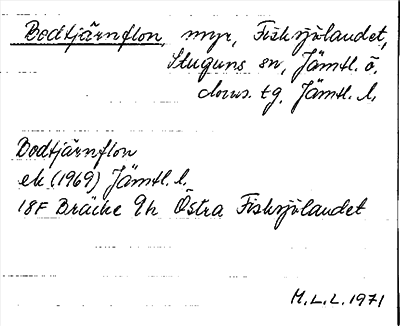 Bodtjärnflon, myr, Fisksjölandet,
Stuguns sn, Jämtl. ö.
doms. tg, Jämtl. l.
Bodtjärnflon
ek (1969) Jämtl. l.
18F Bräcke 9h Östra Fisksjölandet
M.L.L. 1971